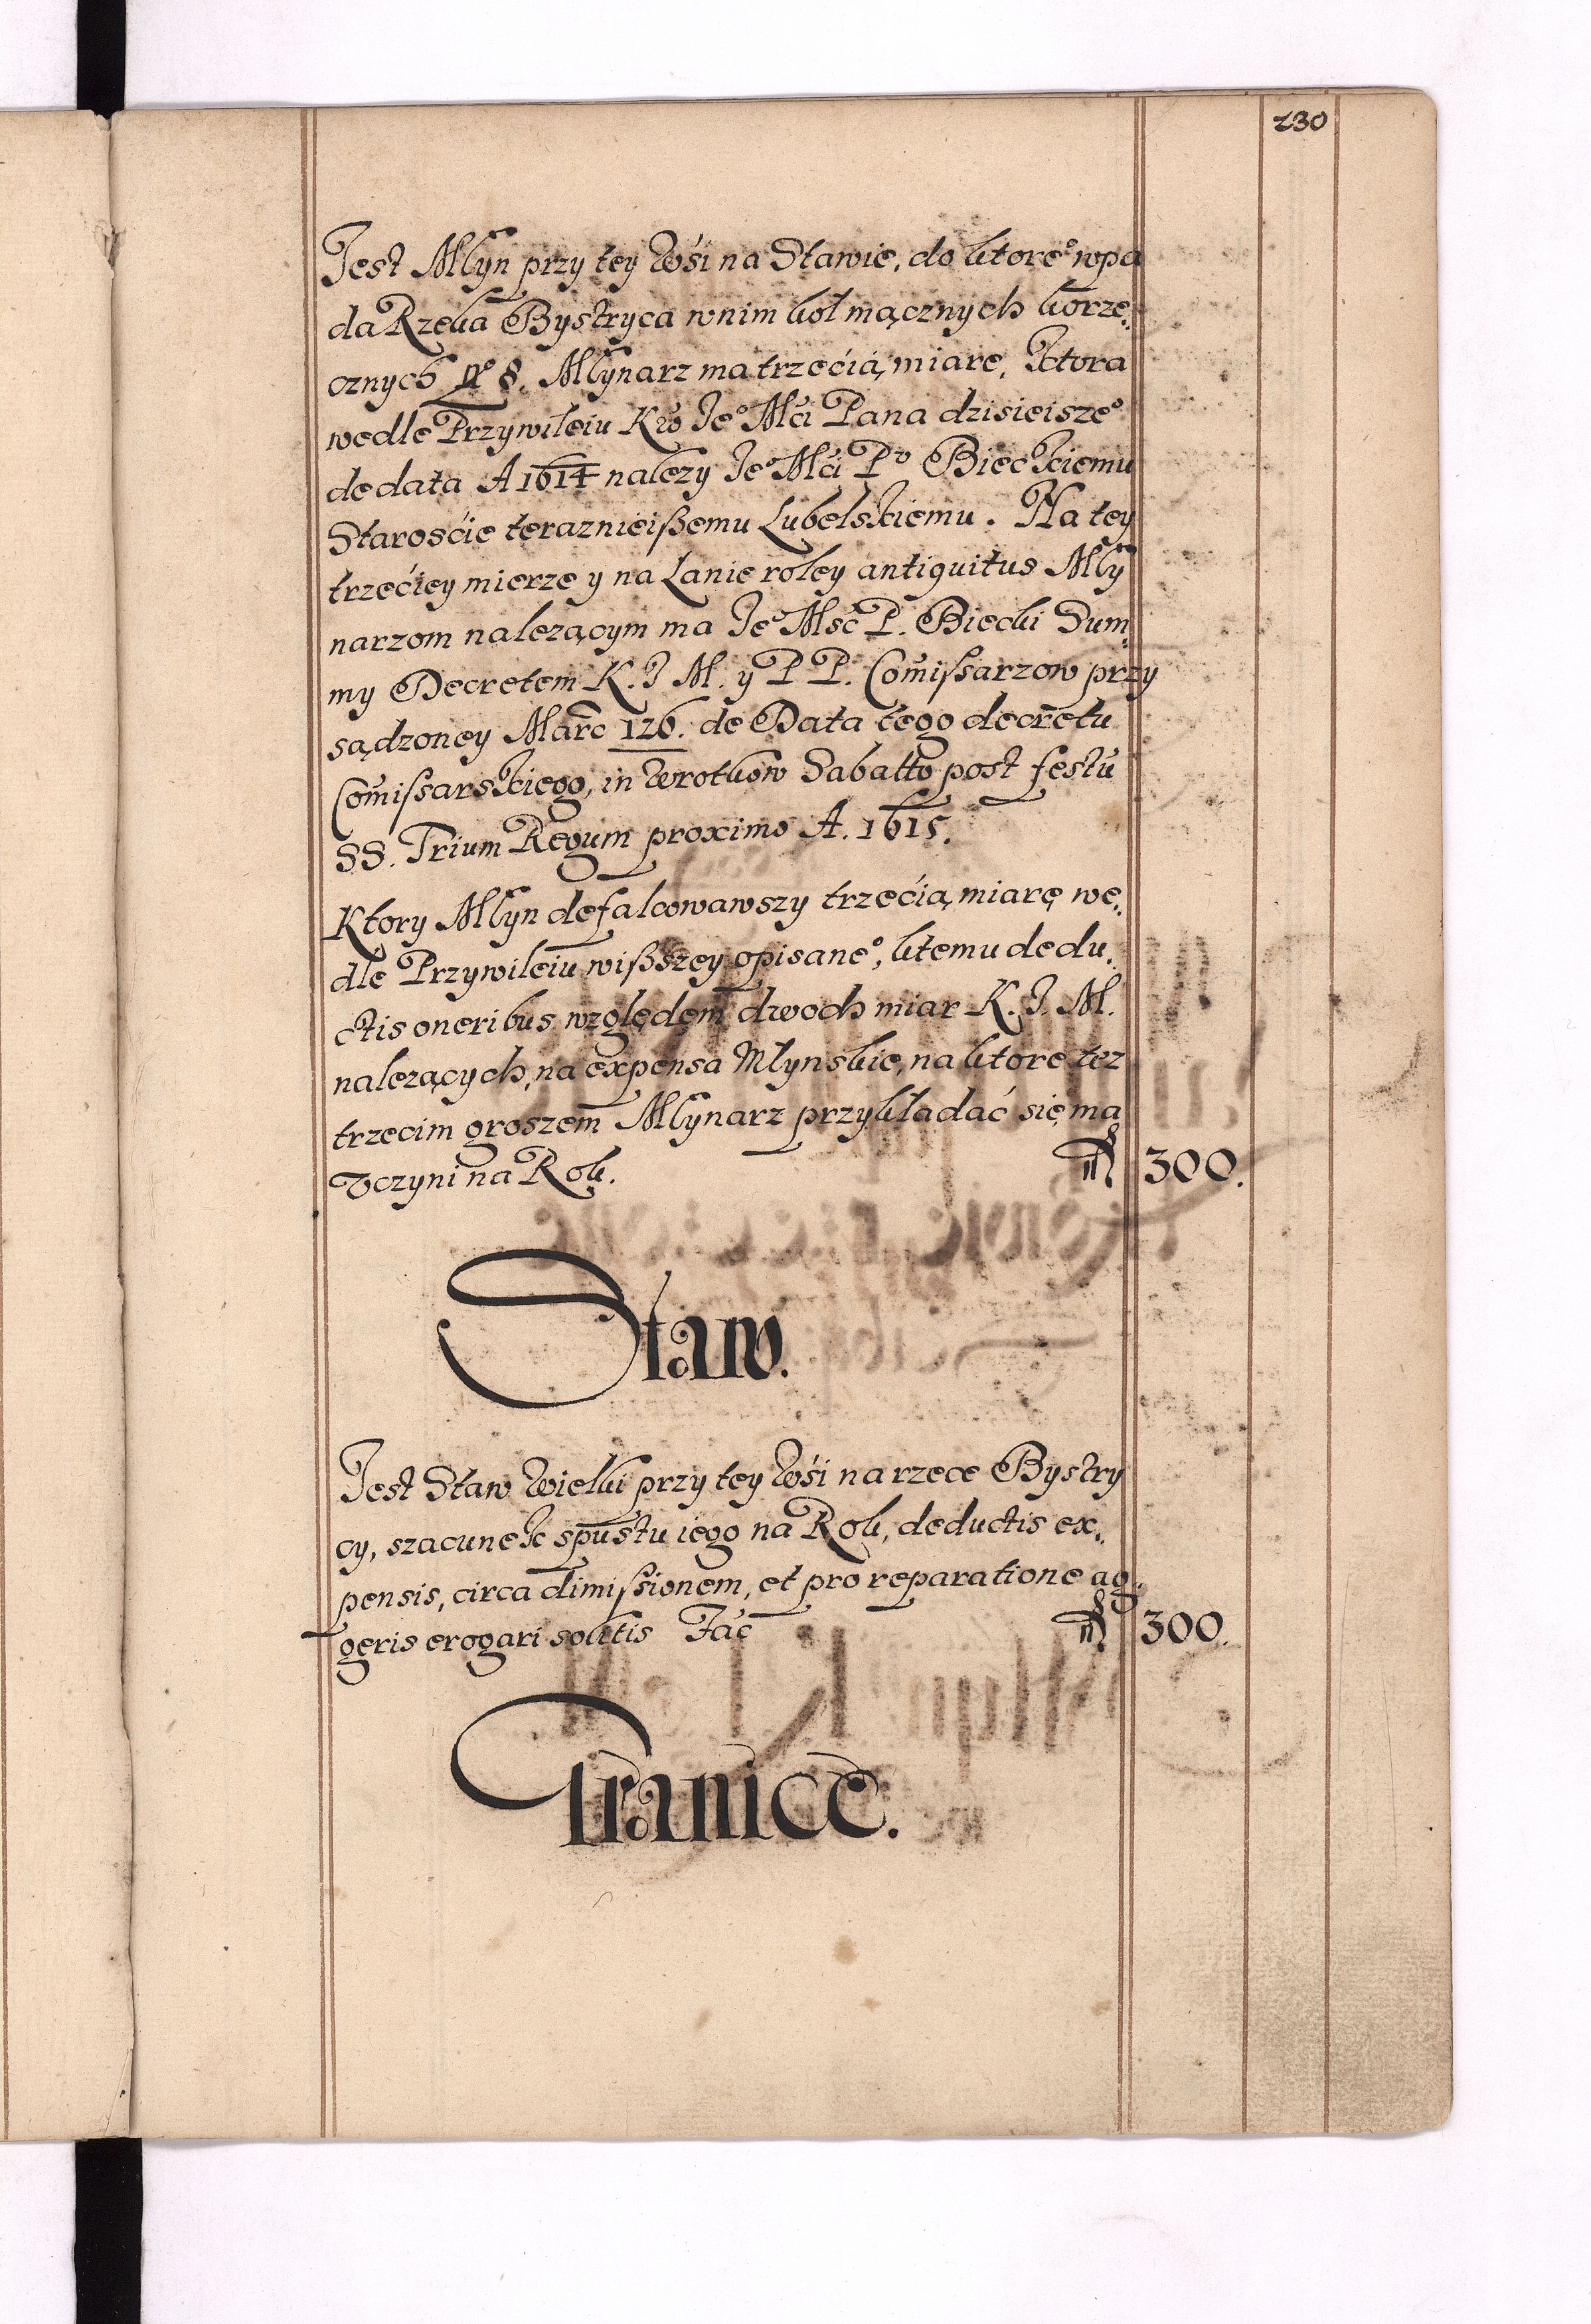 230
Jest Młyn przy tey Wśi na Stawie, do ktore° wpa
da Rzeka Bystryca w nim koł mącznych korze„
cznych N° 8. Młynarz ma trzećią miarę, Ktora
wedle Przywileiu Kro Je° Mći Pana dzisieisze°
de data A 1614 należy Je° Mći P° Bieckiemu
Starośćie teraznieißemu Lubelskiemu. Na tey
trzećiey mierze y na Łanie roley antiquitus Mły
narzom nalezącym ma Je° Mść P. Biecki Sum„
my Decretem K. J M. y P P. Comissarzow przy
sądzoney Marc 126. de Data tego decretu
Comissarskiego, in Wrotkow Sabatto post festū
SS. Trium Regum proximo A. 1615.
Ktory Młyn defalcowawszy trzećią miarę we„
dle Przywileiu wißszey opisane°, ktemu dedu„
ctis oneribus względem dwoch miar K. J. M.
nalezących, na expensa Młynskie, na ktore tez
trzecim groszem Młynarz przykładać się ma
Vczyni na Rok. fl 300.
Staw.
Jest Staw Wielki przy tey Wśi na rzece Bystry
cy, szacunek spustu iego na Rok, deductis ex„
pensis, circa dimissionem, et pro reparatione ag„
geris erogari solitis Fac fl 300.
Granice.